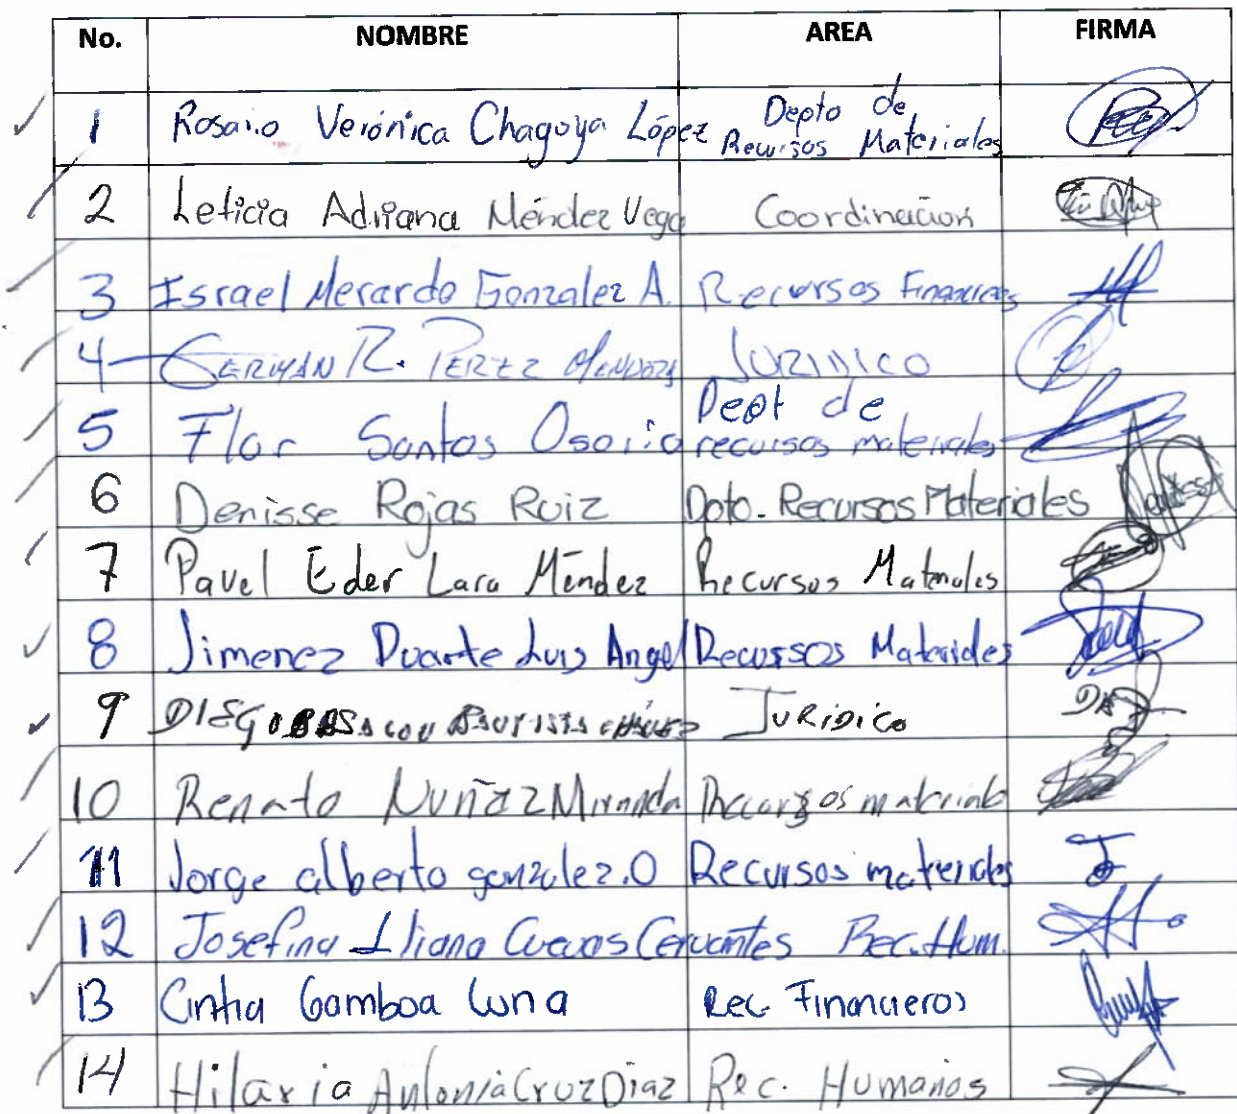 No. NOMBRE AREA FIRMA
1 Rosario Verónica Chagoya López Depto de Recursos Materiales
2 Leticia Adriana Méndez Vega Coordinación
3 Israel Merardo Gonzalez A. Recursos Financieros
4 GERMAN R. PEREZ MENDOZA JURIDICO
5 Flor Santos Osorio Dept de recursos materiales
6 Denisse Rojas Ruiz Dpto. Recursos Materiales
7 Pavel Eder Lara Méndez Recursos Materiales
8 Jimenez Duarte Luis Angel Recursos Materiales
9 DIEGO BAUTISTA JURIDICO
10 Renato Nuñez Miranda Recursos materiales
11 Jorge alberto gonzalez.O Recursos materiales
12 Josefina Liliana Cuevas Cervantes Rec. Hum.
13 Cinthia Gamboa Luna Rec. Financieros
14 Hilaria Antonia Cruz Diaz Rec. Humanos